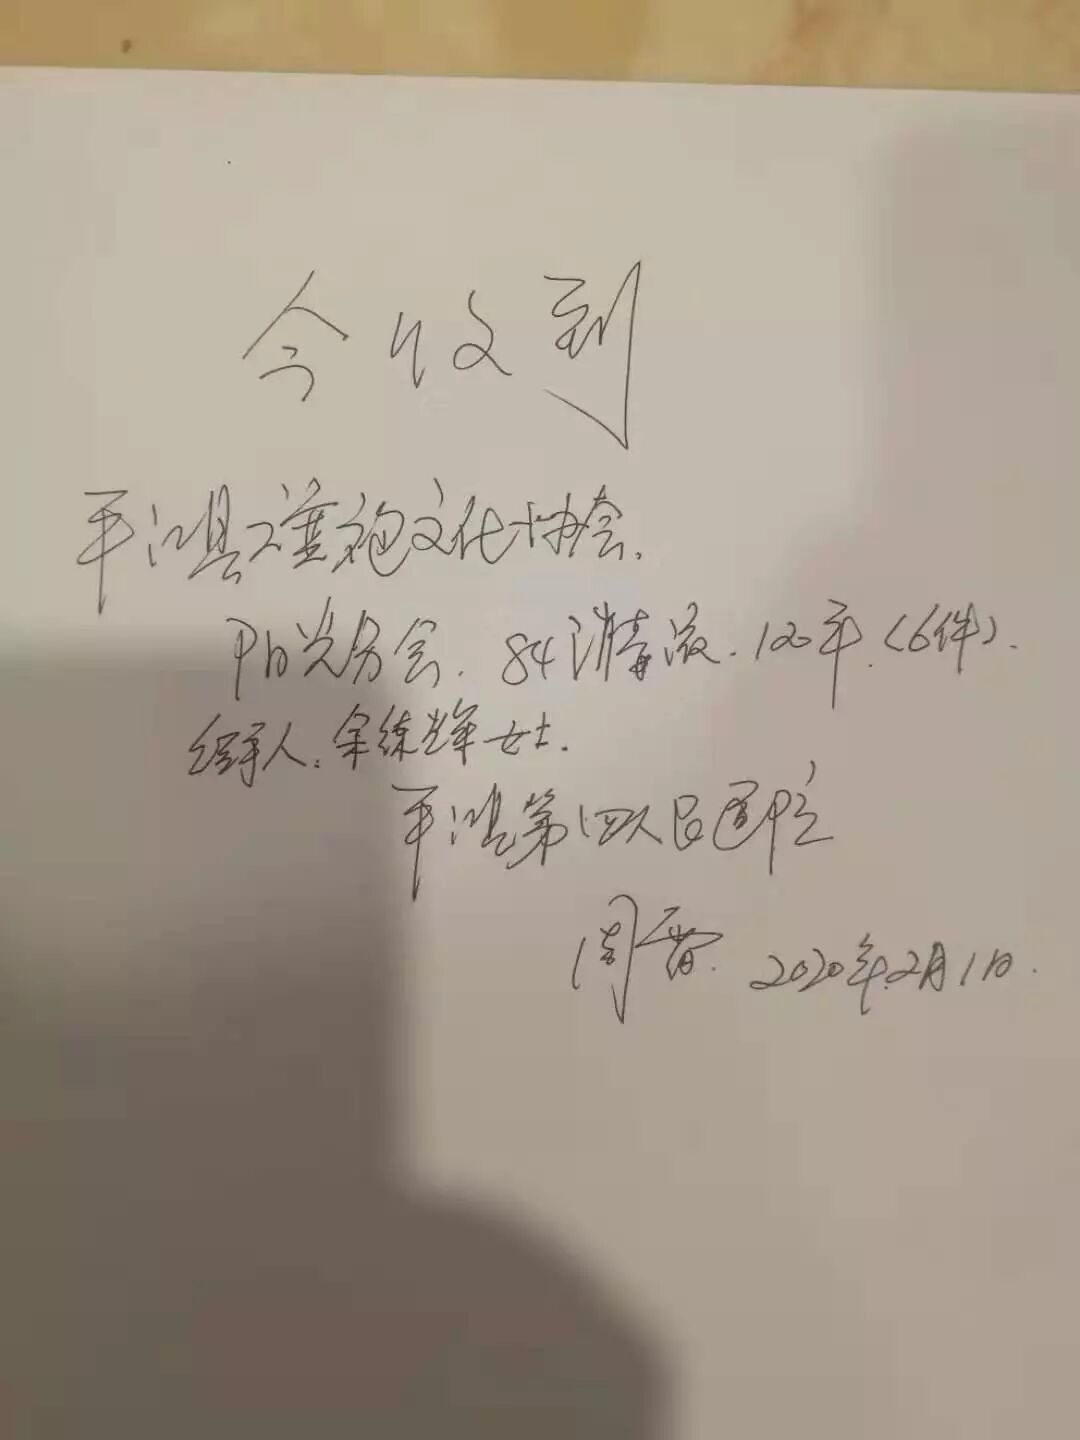 今收到
平江县旗袍文化协会.
阳光分会. 84消毒液. 120斤.(6件).
经手人:余练辉女士.
平江县第四人民医院
周 2020年.2月1日.